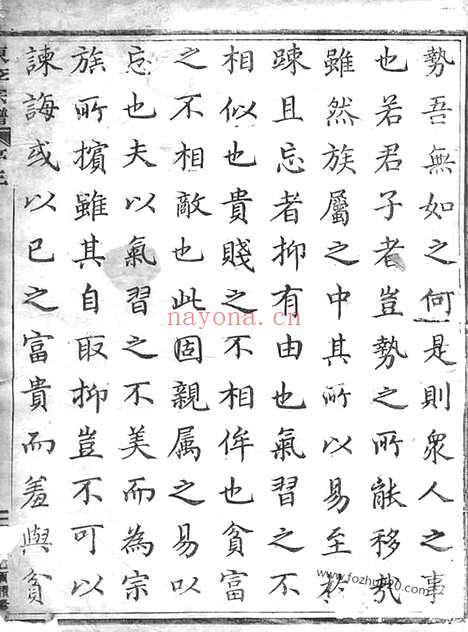 勢吾無如之何是則衆人之事
也若君子者豈勢之所能移哉
雖然族屬之中其所以易至於
踈且忘者抑有由也氣習之不
相似也貴賤之不相侔也貧富
之不相敵也此固親属之易以
忘也夫以氣習之不美而為宗
族所擯雖其自取抑豈不可以
諫誨或以已之富貴而羞與貧
宗譜
nayona.cn
www.fozhu920.com